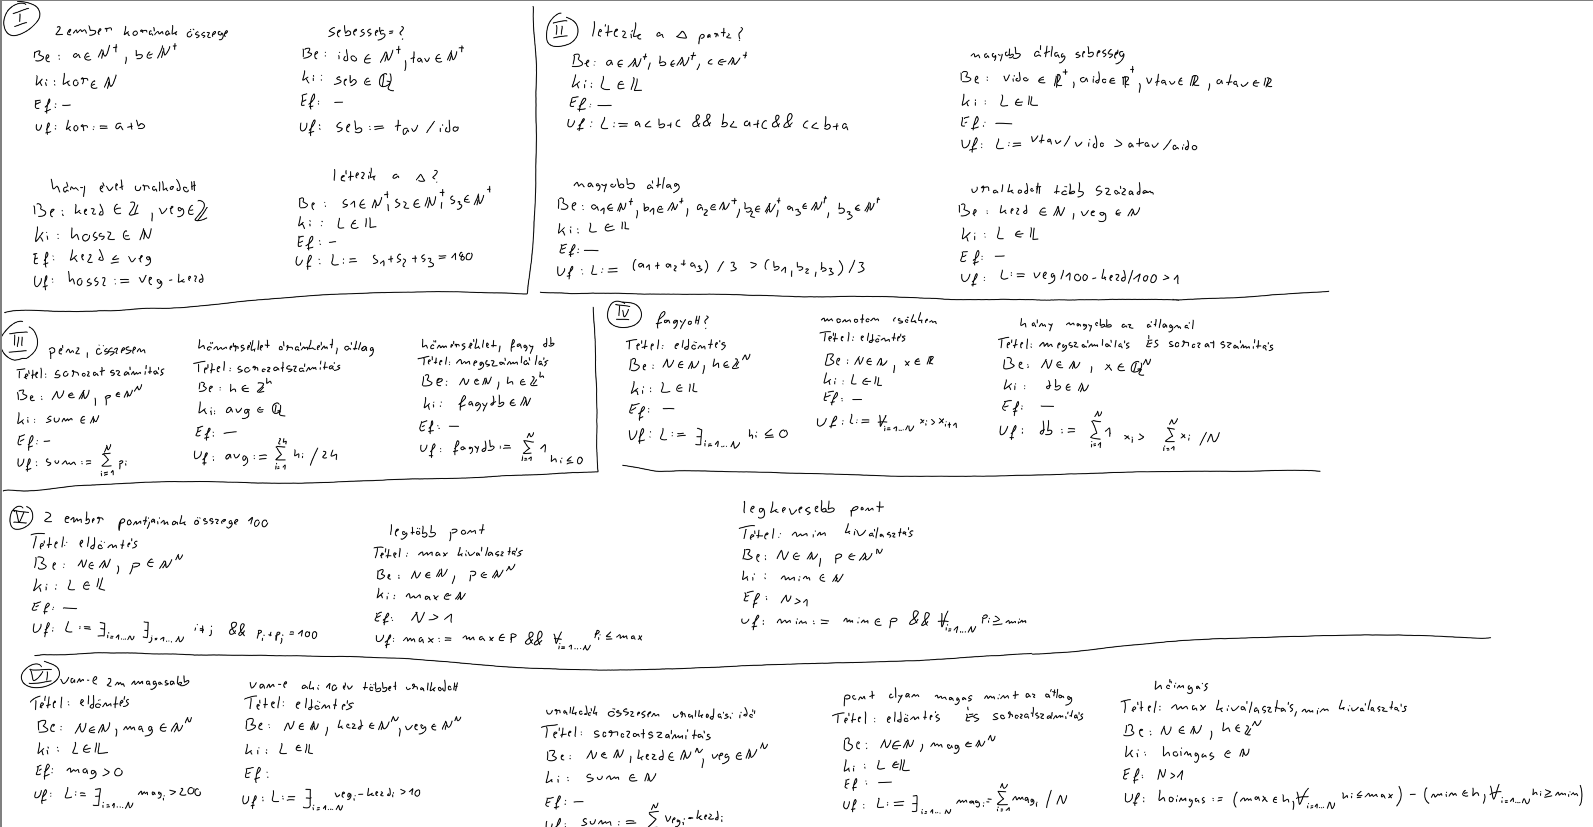 I
2 ember korának összege
Be: a∈N⁺, b∈N⁺
ki: kor∈N
Ef: —
Uf: kor:= a+b
sebesseg=?
Be: ido∈N⁺, tav∈N⁺
ki: seb∈ℚ
Ef: —
Uf: seb:= tav/ido
hány évet uralkodott
Be: kezd∈ℤ, veg∈ℤ
ki: hossz∈N
Ef: kezd ≤ veg
Uf: hossz:= veg-kezd
létezik a △?
Be: s1∈N⁺, s2∈N⁺, s3∈N⁺
ki: L∈𝕃
Ef: —
Uf: L:= s1+s2+s3=180
II
létezik a △ partz?
Be: a∈N⁺, b∈N⁺, c∈N⁺
ki: L∈𝕃
Ef: —
Uf: L:= a<b+c && b<a+c && c<b+a
nagyobb átlag sebesség
Be: vido∈ℝ⁺, aido∈ℝ⁺, vtav∈ℝ, atav∈ℝ
ki: L∈𝕃
Ef: —
Uf: L:= vtav/vido > atav/aido
nagyobb átlag
Be: a1∈N⁺, b1∈N⁺, a2∈N⁺, b2∈N⁺, a3∈N⁺, b3∈N⁺
ki: L∈𝕃
Ef: —
Uf: L:= (a1+a2+a3)/3 > (b1,b2,b3)/3
uralkodott több századon
Be: kezd∈N, veg∈N
ki: L∈𝕃
Ef: —
Uf: L:= veg/100-kezd/100>1
III
pénz, összesen
Tétel: sorozatszámítás
Be: N∈N, p∈Nᴺ
ki: sum∈N
Ef: —
Uf: sum:= ∑ᵢ₌₁ᴺ pᵢ
hőmérséklet óránként, átlag
Tétel: sorozatszámítás
Be: h∈ℤʰ
ki: avg∈ℚ
Ef: —
Uf: avg:= ∑ᵢ₌₁²⁴ hᵢ/24
hőmérséklet, fagy db
Tétel: megszámlálás
Be: N∈N, h∈ℤʰ
ki: fagydb∈N
Ef: —
Uf: fagydb:= ∑ᵢ₌₁ᴺ 1 hᵢ≤0
IV
fagyott?
Tétel: eldöntés
Be: N∈N, h∈ℤᴺ
ki: L∈𝕃
Ef: —
Uf: L:= ∃ᵢ₌₁...N hᵢ≤0
momoton csökken
Tétel: eldöntés
Be: N∈N, x∈ℝ
ki: L∈𝕃
Ef: —
Uf: L:= ∀ᵢ₌₁...N xᵢ>xᵢ₊₁
hány nagyobb az átlagnál
Tétel: megszámlálás ÉS sorozatszámítás
Be: N∈N, x∈ℚᴺ
ki: db∈N
Ef: —
Uf: db:= ∑ᵢ₌₁ᴺ 1 xᵢ> ∑ᵢ₌₁ᴺ xᵢ/N
V
2 ember pontjainak összege 100
Tétel: eldöntés
Be: N∈N, p∈Nᴺ
ki: L∈𝕃
Ef: —
Uf: L:= ∃ᵢ₌₁...N ∃ⱼ₌₁...N i≠j && pᵢ+pⱼ=100
legtöbb pont
Tétel: max kiválasztás
Be: N∈N, p∈Nᴺ
ki: max∈N
Ef: N>1
Uf: max:= max∈p && ∀ᵢ₌₁...N pᵢ≤max
legkevesebb pont
Tétel: min kiválasztás
Be: N∈N, p∈Nᴺ
ki: min∈N
Ef: N>1
Uf: min:= min∈p && ∀ᵢ₌₁...N pᵢ≥min
VI
van-e 2m magasabb
Tétel: eldöntés
Be: N∈N, mag∈Nᴺ
ki: L∈𝕃
Ef: mag>0
Uf: L:= ∃ᵢ₌₁...N magᵢ>200
van-e aki 10 év többet uralkodott
Tétel: eldöntés
Be: N∈N, kezd∈Nᴺ, veg∈Nᴺ
ki: L∈𝕃
Ef:
Uf: L:= ∃ᵢ₌₁...N vegᵢ-kezdᵢ>10
uralkodók összesen uralkodási idő
Tétel: sorozatszámítás
Be: N∈N, kezd∈Nᴺ, veg∈Nᴺ
ki: sum∈N
Ef: —
Uf: sum:= ∑ᴺ vegᵢ-kezdᵢ
pont olyan magas mint az átlag
Tétel: eldöntés ÉS sorozatszámítás
Be: N∈N, mag∈Nᴺ
ki: L∈𝕃
Ef: —
Uf: L:= ∃ᵢ₌₁...N magᵢ= ∑ᵢ₌₁ᴺ magᵢ/N
hőingás
Tétel: max kiválasztás, min kiválasztás
Be: N∈N, h∈ℤᴺ
ki: hoingas∈N
Ef: N>1
Uf: hoingas:= (max∈h, ∀ᵢ₌₁...N hᵢ≤max) - (min∈h, ∀ᵢ₌₁...N hᵢ≥min)